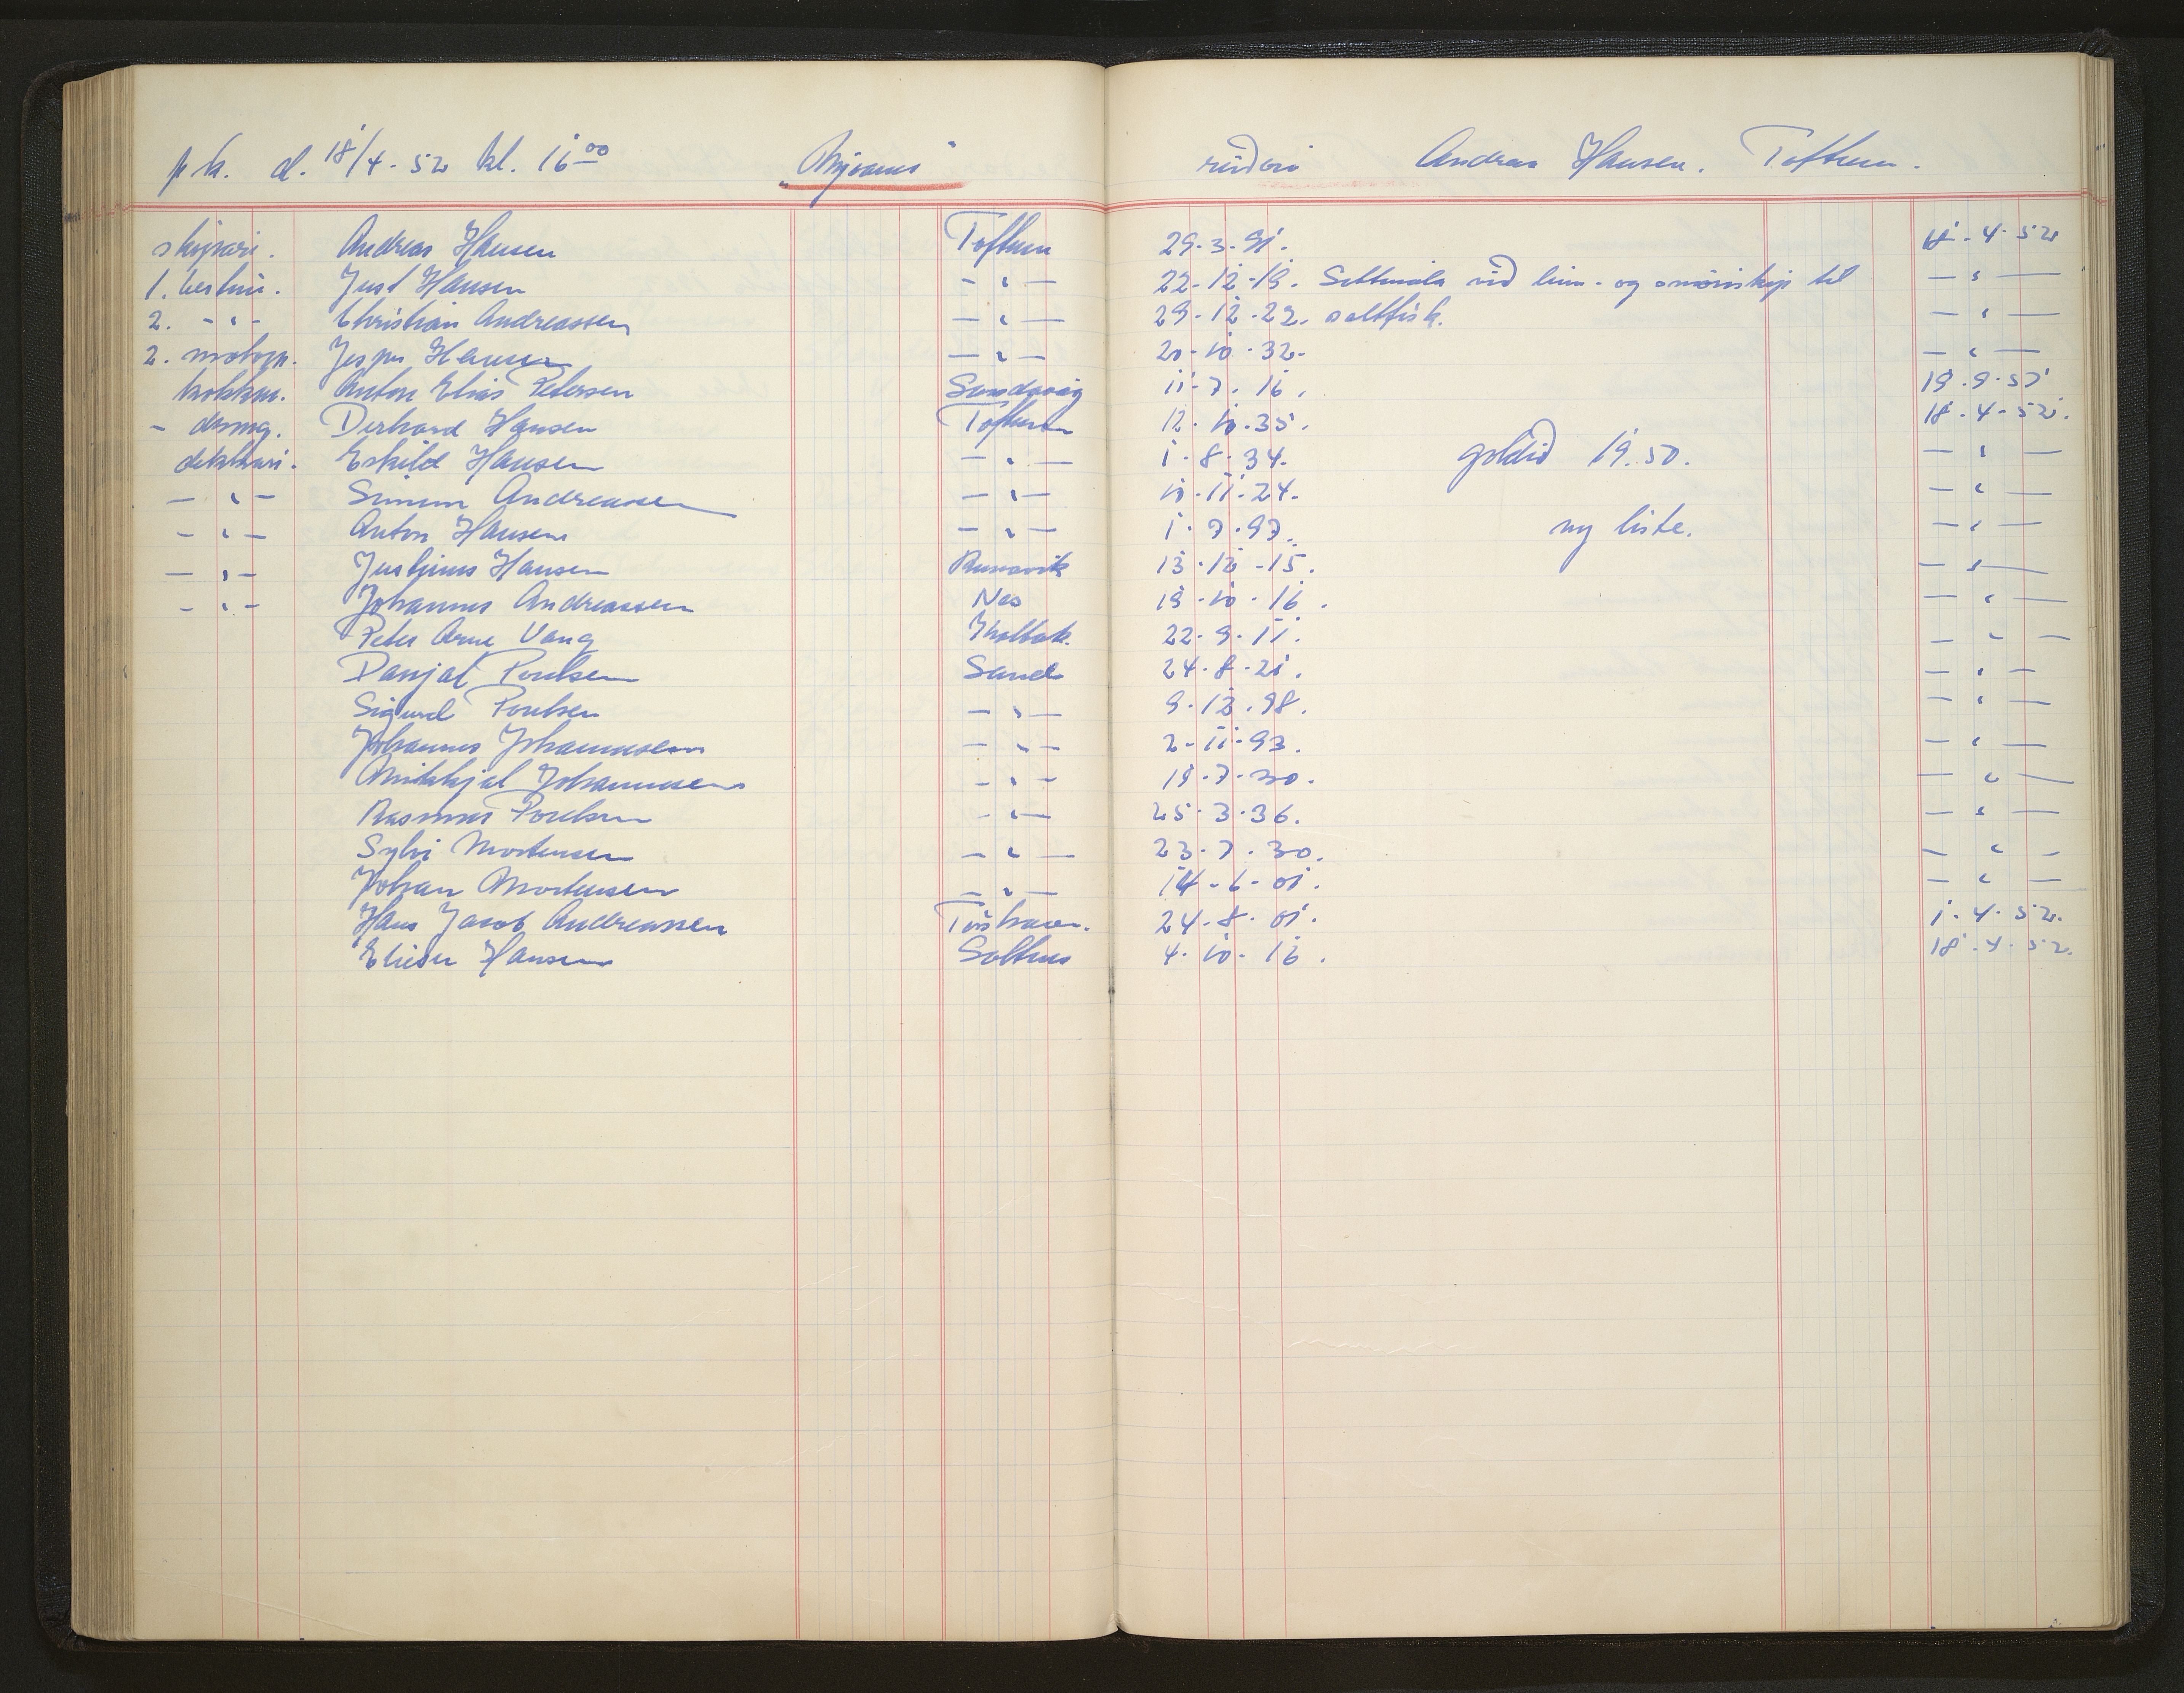 p.k. d. 18/4-52 kl. 16 00 reiðari Andreas Hansen. Toftum.
skipari. Andreas Hansen Toftum 29-3-91. 18-4-52
1. bestm. Just Hansen - " - 22-12-19. Sáttmála við línu- og snøriskip til - " -
2. - " - Christian Andreassen - " - 29-12-22. saltfisk. - " -
2. motorp. Jesper Hansen - " - 20-10-32. - " -
kokkur. Anton Elias Petersen Sandavág 11-7-16. 19-9-51
- drong. Derhard Hansen Toftum 12-10-35. 18-4-52.
dekkari. Eskild Hansen - " - 1-8-34. goldið 19.50. - " -
- " - Simun Andreassen - " - 10-11-24. - " -
- " - Anton Hansen - " - 1-7-97. ny liste. - " -
- " - Justinus Hansen Runavík 13-12-15. - " -
- " - Johannus Andreassen Nes 19-10-16. - " -
Peter Arne Vang 22-9-11. - " -
Danjal Poulsen Sand 24-8-21. - " -
Sigurd Poulsen - " - 9-12-98. - " -
Johannus Johannusen - " - 2-11-93. - " -
Mikkjal Johannusen - " - 19-7-30. - " -
Rasmus Poulsen - " - 25-3-36. - " -
Sylvi Mortensen - " - 23-7-30. - " -
Johan Mortensen - " - 14-6-01. - " -
Hans Jacob Andreassen Tórshavn. 24-8-01. 1-4-52.
Elieser Hansen 4-10-16. 18-4-52.